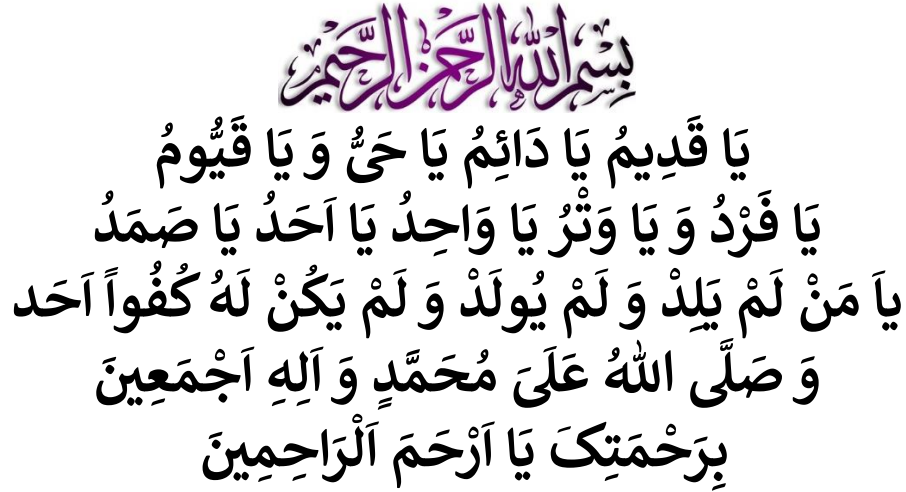 بِسْمِ اللهِ الرَّحْمنِ الرَّحِيمِ
يَا قَدِيمُ يَا دَائِمُ يَا حَیُّ وَ يَا قَيُّومُ
يَا فَرْدُ وَ يَا وَتْرُ يَا وَاحِدُ يَا اَحَدُ يَا صَمَدُ
ياَ مَنْ لَمْ يَلِدْ وَ لَمْ يُولَدْ وَ لَمْ يَكُنْ لَهُ كُفُواً اَحَد
وَ صَلَّى اللهُ عَلَىَ مُحَمَّدٍ وَ اَلِهِ اَجْمَعِينَ
بِرَحْمَتِکَ يَا اَرْحَمَ اَلْرَاحِمِينَ